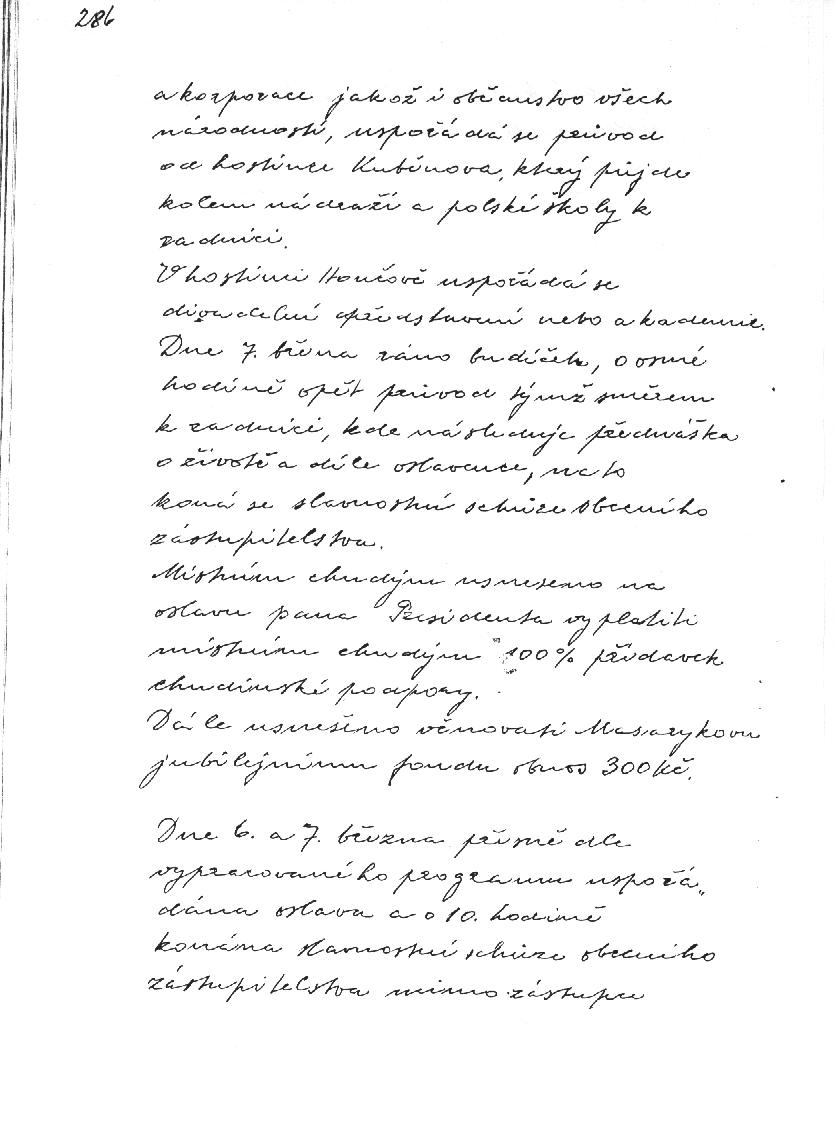 286
a korporace jakož i občanstvo všech
národností, uspořádá se průvod
od hostince Kuběnova, který půjde
kolem nádraží a polské školy k
radnici.
V hostinci Hončově uspořádá se
divadelní představení nebo akademie.
Dne 7. března ráno budíček, o osmé
hodině opět průvod týmž směrem
k radnici, kde následuje přednáška
o životě a díle oslavence, na to
koná se slavnostní schůze obecního
zastupitelstva.
Místním chudým usneseno na
oslavu pana Presidenta vyplatiti
místním chudým 100% přídavek
chudinské podpory.
Dále usnešeno věnovati Masarykovu
jubilejnímu fondu obnos 300 Kč.
Dne 6. a 7. března přesně dle
vypracovaného programu uspořá„
dána oslava a o 10. hodině
konána slavnostní schůze obecního
zástupitelstva mimo zástupce